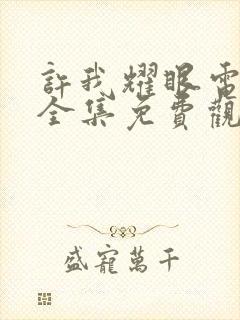 許我耀眼電
全集免費觀
盛寵萬千